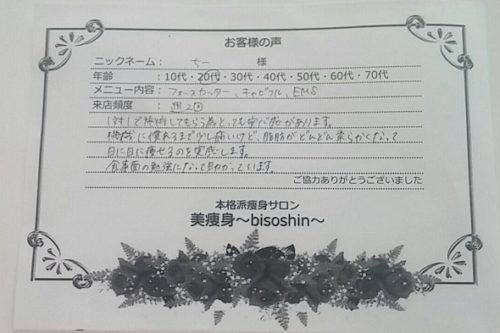 お客様の声
ニックネーム： ちー 様
年齢 ：10代・20代・30代・40代・50代・60代・70代
メニュー内容：フォースカッター、キャビフル、EMS
来店頻度 ： 週2回
1対1で施術してもらう為とても安心感があります。
機械に慣れるまで少し痛いけど、脂肪がどんどん柔らかくなって
日に日に痩せるのを実感します。
食事面の勉強になって助かっています。
ご協力ありがとうございました
本格派痩身サロン
美痩身～bisoshin～